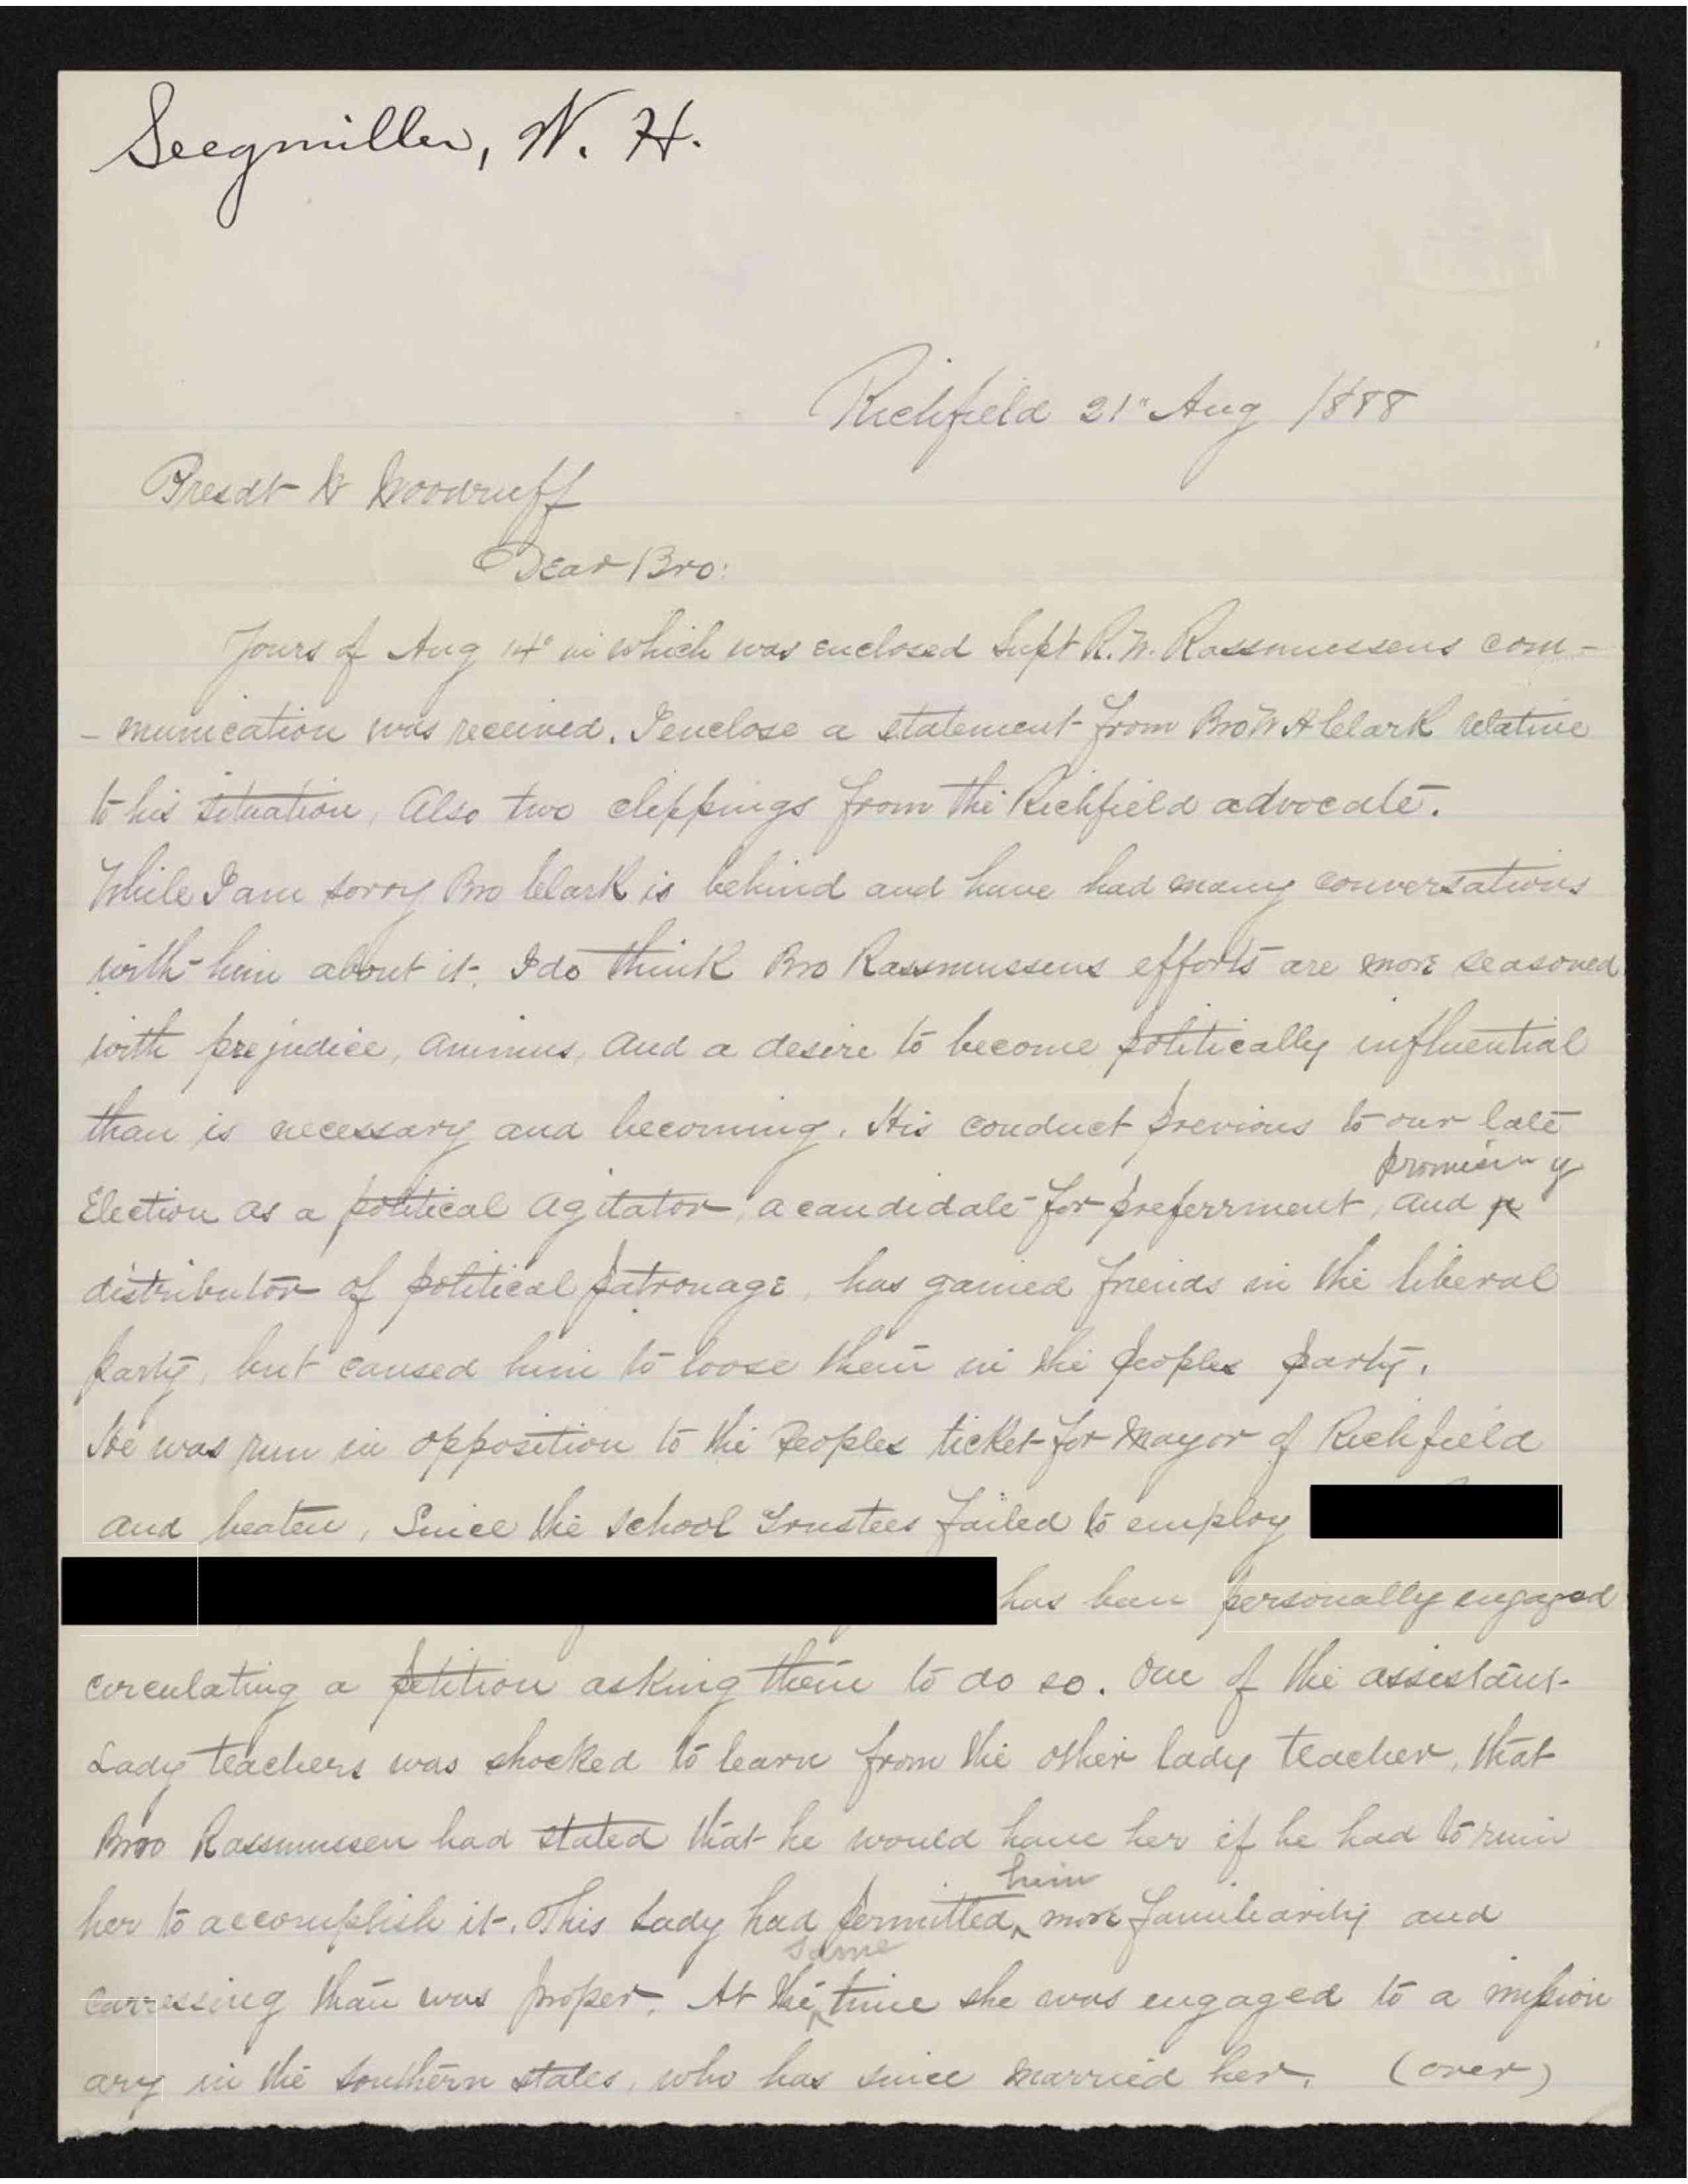 Seegmiller, W. H.
Richfield 21" Aug 1888
Presdt W Woodruff
Dear Bro:
Yours of Aug 14" in which was enclosed Supt R. W. Rassmussens com-
-munication was received. I enclose a statement from Bro W A Clark relative
to his situation, Also two clippings from the Richfield advocate.
While I am sorry Bro Clark is behind and have had many conversations
with him about it. I do think Bro Rassmussens efforts are more seasoned
with prejudice, animus, and a desire to become politically influential
than is necessary and becoming. His conduct previous to our late
promising
Election as a political agitator, a candidate for preferrment, and
distributor of political patronage, has gained friends in the liberal
party, but caused him to loose them in the peoples party.
He was run in opposition to the Peoples ticket for Mayor of Richfield
and beaten, Since the school Trustees failed to employ
has been personally engaged
circulating a petition asking them to do so. One of the assistant
Lady teachers was shocked to learn from the other lady teacher, that
Broo Rassmussen had stated that he would have her if he had to ruin
her to accomplish it. This Lady had permitted him more familiarity and
carressing than was proper. At the same time she was engaged to a mission
ary in the southern states, who has since married her. (over)